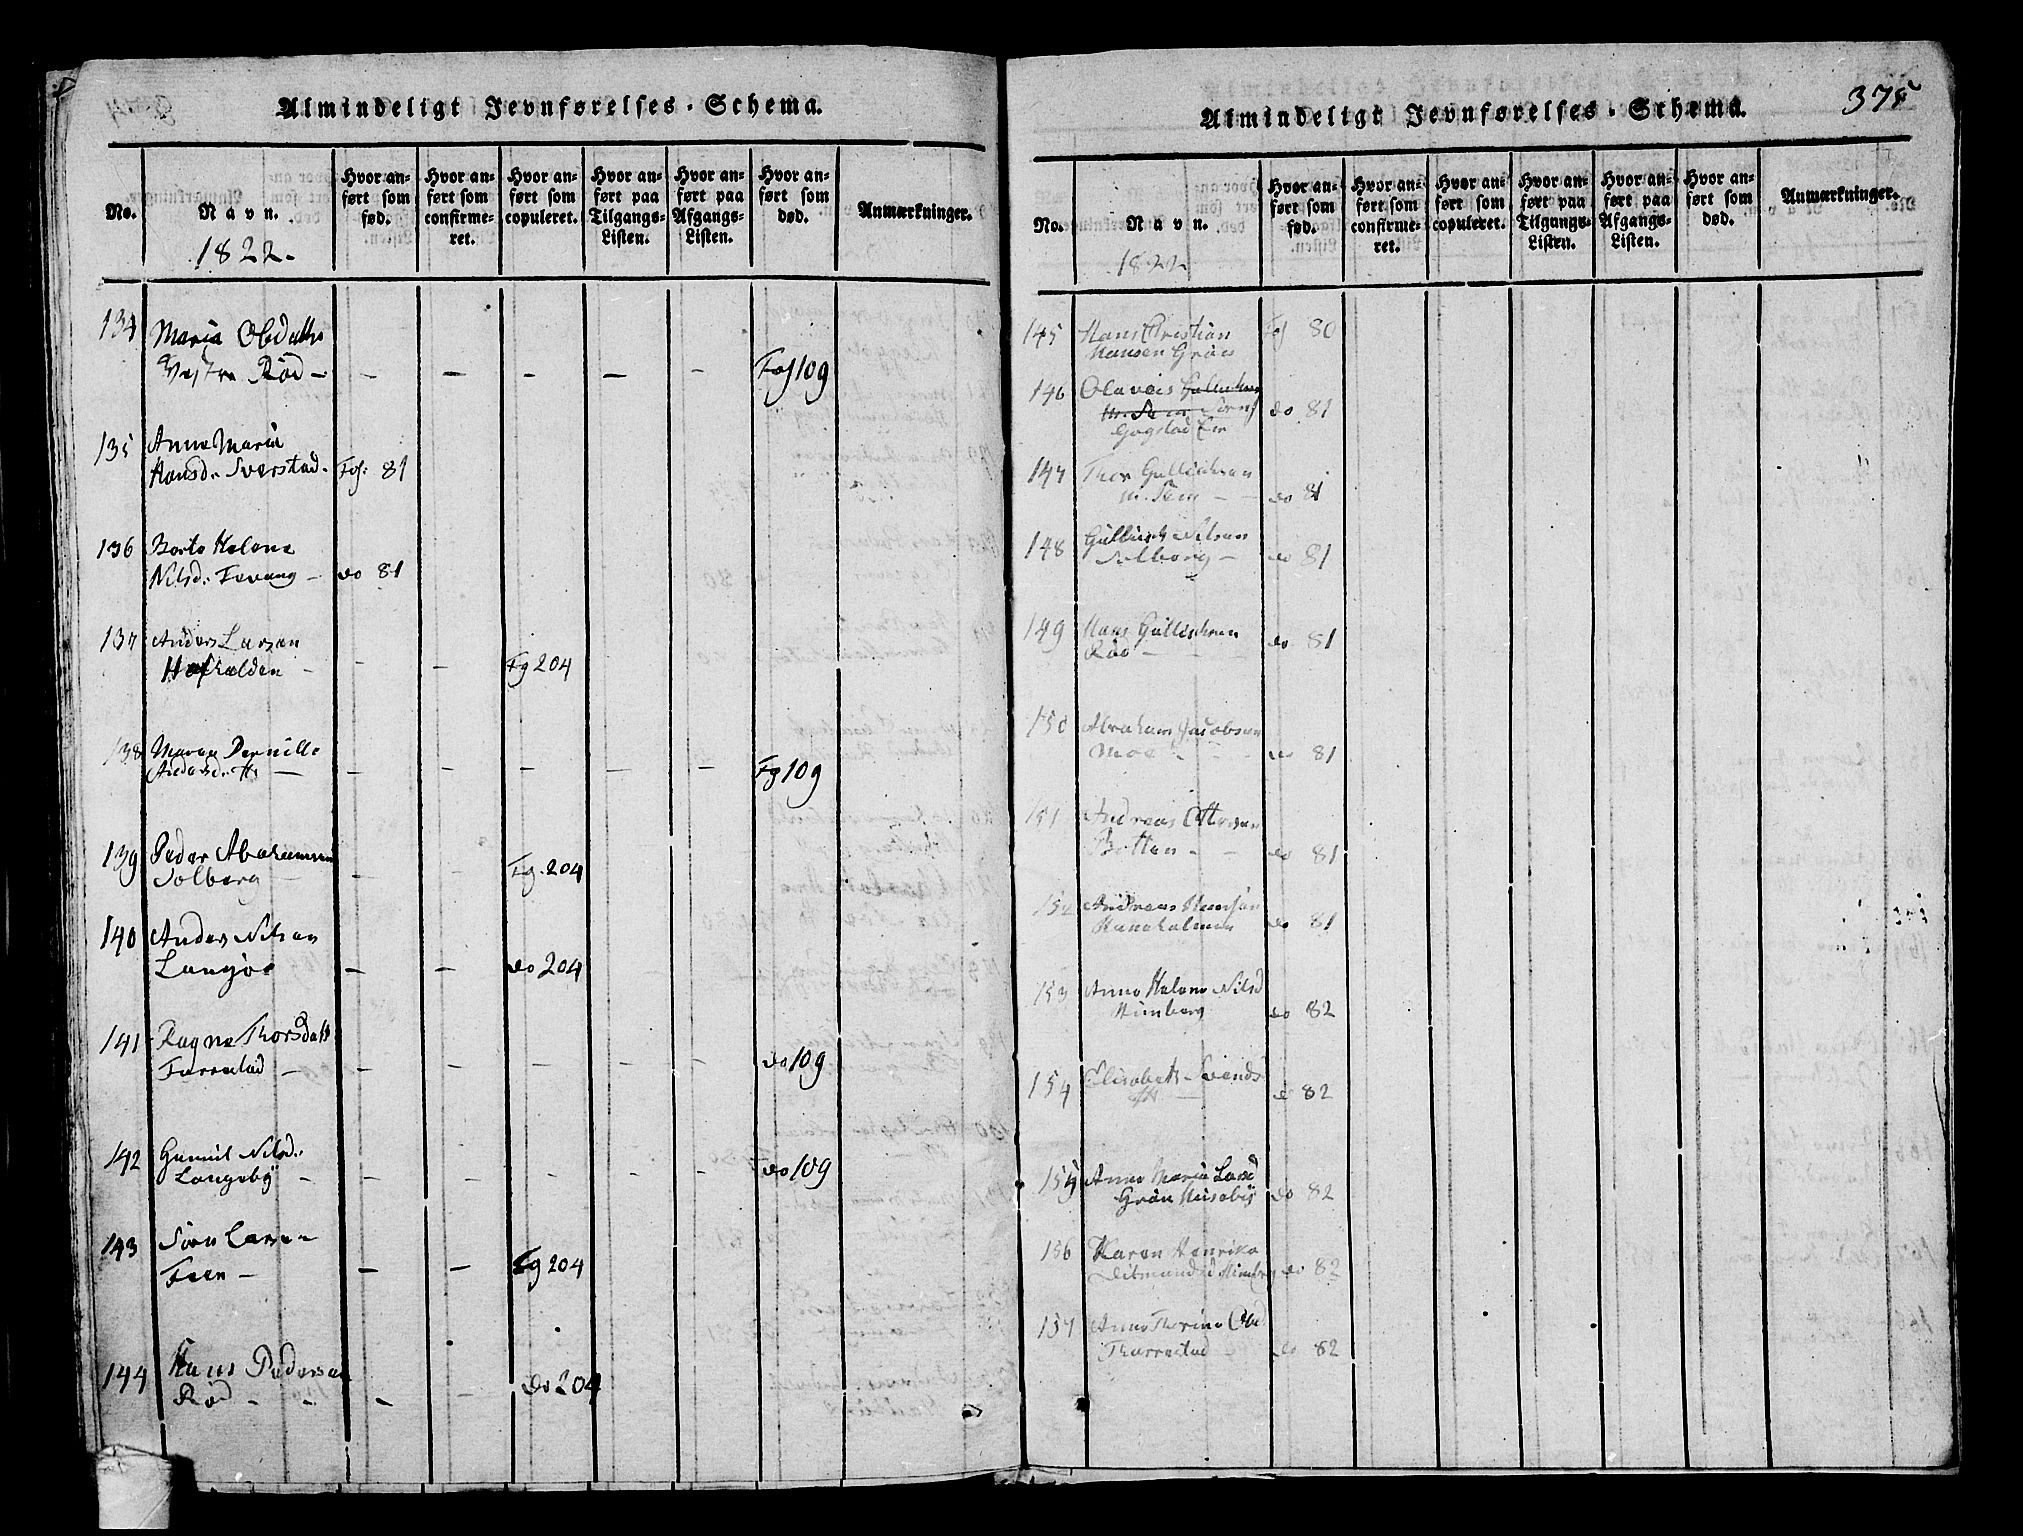 Almindeligt Jevnførelses-Schema.
No.
Navn.
1822.
Hvor anført som fød.
Hvor anført som confirmeret.
Hvor anført som copuleret.
Hvor anført paa Tilgangs-Listen.
Hvor anført paa Afgangs-Listen.
Hvor anført som død.
Anmærkninger.
134 Maria Olsdatter
Vestre Rød - - - - - - Fol 109
135 Anne Maria
Hansd. Sverstad. Fol: 81
136 Berte Helene
Nilsd. Fevang - do 81
137 Anders Larsen
- - - Fg 204
138 Maren Pernille
Andersd. - - - - - - Fg 109
139 Peder Abrahamsen
Solberg - - Fg. 204
140 Anders Nilsen
Langøe - - do 204
141 Ragne Thorsdatt
Furrestad - - - - - - do 109
142 Gunnil Nilsd.
Langebÿ - - - - - - do 109
143 Sören Larsen
Feen - - - Fg 204
144 Hans Pedersen
Rød - - - - do 204
Almindeligt Jevnførelses-Schema.
375
No.
Navn.
1822
Hvor anført som fød.
Hvor anført som confirmeret.
Hvor anført som copuleret.
Hvor anført paa Tilgangs-Listen.
Hvor anført paa Afgangs-Listen.
Hvor anført som død.
Anmærkninger.
145 Hans Christian Fol 80
Hansen Gröin
146 Olaveis
do 81
Gogstad Eie
147 Thor Gullichsen
m. Sem - - do 81
148 Gullich Nilsen
Solberg - do 81
149 Hans Gullichsen
Röd - - - do 81
150 Abraham Jacobsen
Moe - - - do 81
151 Andreas Ottersen
Botten - - do 81
152 Andreas Hansen
do 81
153 Anne Helene Nilsd
Himberg do 82
154 Elisabeth Svends
do 82
155 Anne Maria Larsd
Grön Huseby do 82
156 Karen Henrika
Ditmandsd Himberg do 82
157 Anne Thorine Olsd
Thorrestad do 82